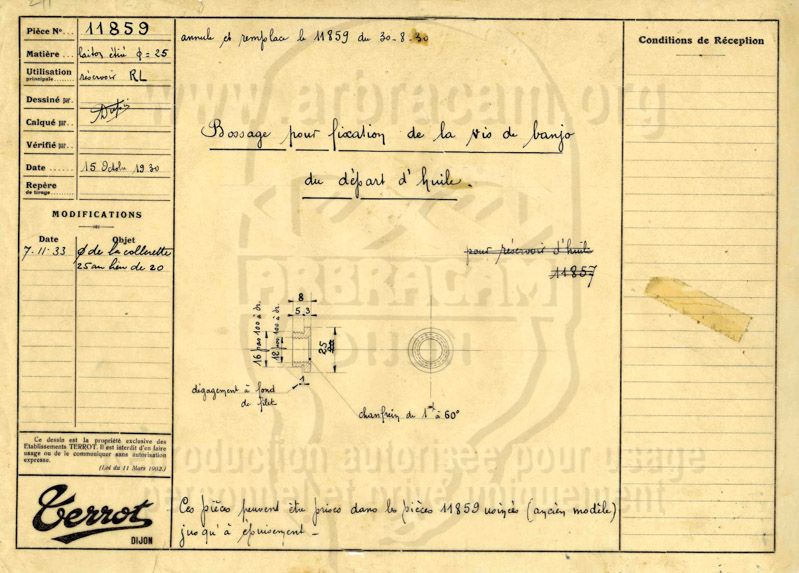 Pièce No... 11859
Matière ..... laiton étiré ϕ = 25
Utilisation principale ...... réservoir RL
Dessiné par.
Calqué par..
Vérifié par..
Date ..... 15 Octobre 1930
Repère de tirage.......
MODIFICATIONS
Date Objet
7.11.33 ϕ de la collerette
25 au lieu de 20
Ce dessin est la propriété exclusive des
Etablissements TERROT. Il est interdit d'en faire
usage ou de le communiquer sans autorisation
expresse.
(Loi du 11 Mars 1902.)
Terrot
DIJON
annule et remplace le 11859 du 30-8-30
Bossage pour fixation de la vis de banjo
du départ d'huile.
pour réservoir d'huile
11857
8
5 3
16 pas 100 à dr.
12 pas 100 à dr.
25
1
dégagement à fond
de filet
chanfrein de 1m/m à 60°
Ces pièces peuvent être prises dans les pièces 11859 usinées (ancien modèle)
jusqu'à épuisement -
Conditions de Réception
www.arbracam.org
ARBRACAM
DIJON
reproduction autorisée pour usage
personnel et privé uniquement